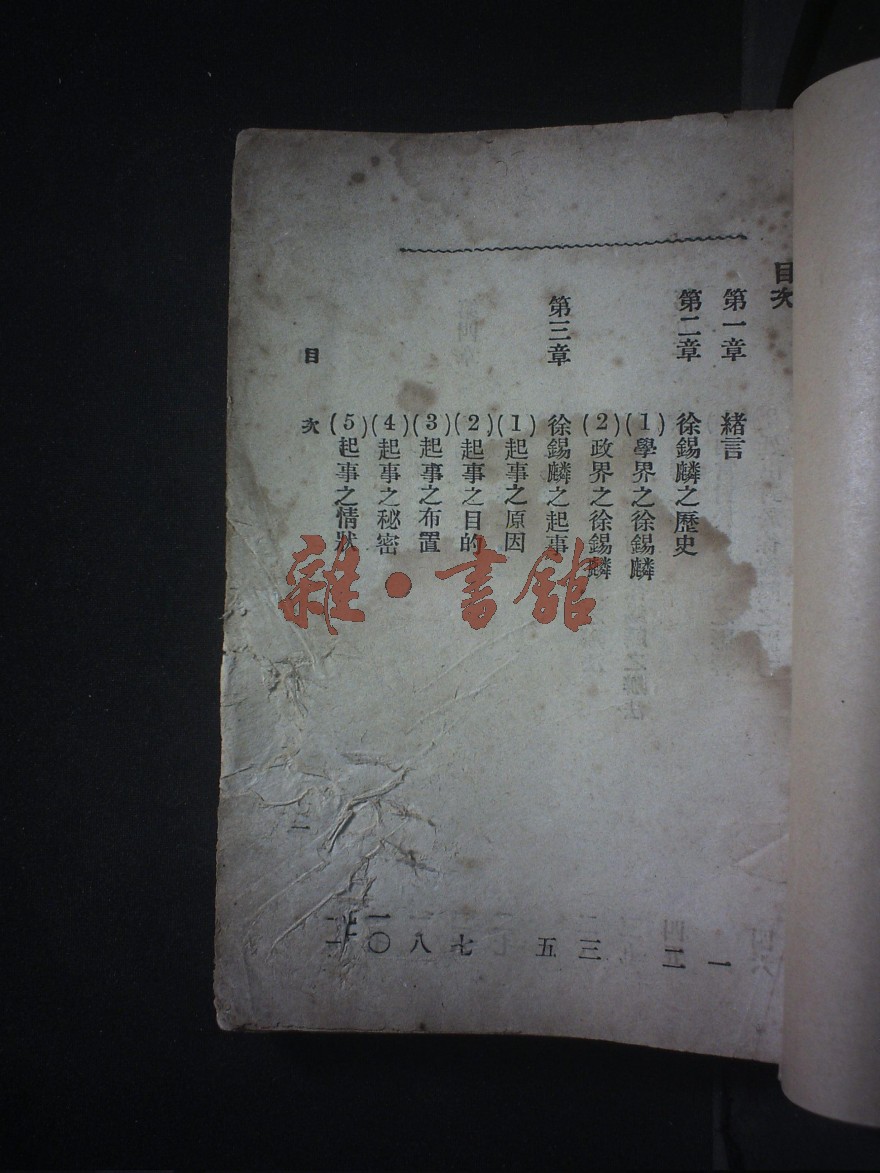 目次
第一章 緒言 一
第二章 徐錫麟之歷史 二
(1)學界之徐錫麟
(2)政界之徐錫麟 三
第三章 徐錫麟之起事 五
(1)起事之原因
(2)起事之目的 七
(3)起事之布置 八
(4)起事之秘密 〇
(5)起事之情狀
目次
一
雜·書館